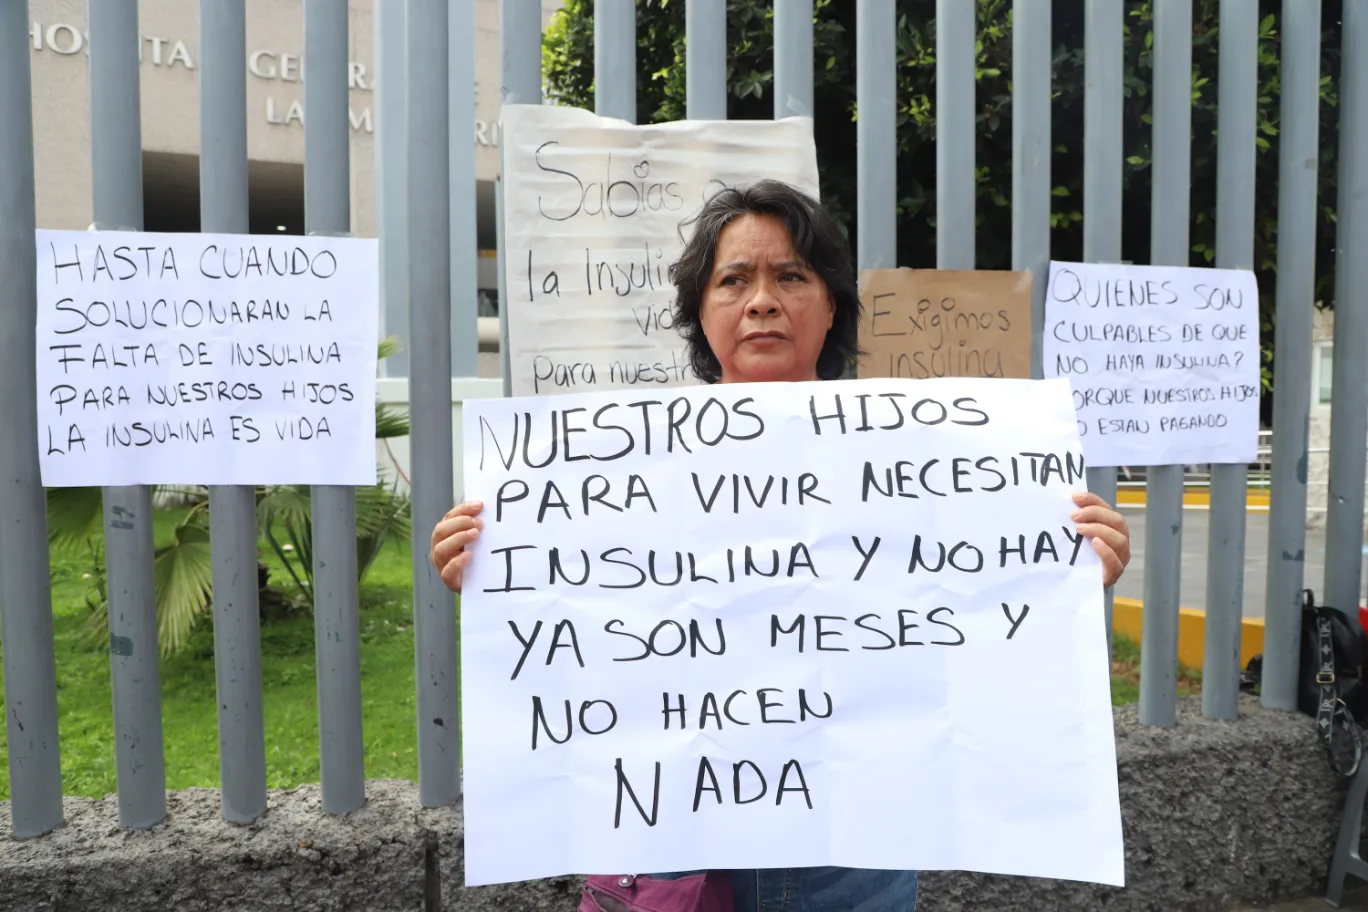 HOSPITAL GENERAL
LA
HASTA CUANDO
SOLUCIONARAN LA
FALTA DE INSULINA
PARA NUESTROS HIJOS
LA INSULINA ES VIDA
Sabias
la
Para
Exigimos
insulina
QUIENES SON
CULPABLES DE QUE
NO HAYA INSULINA?
PORQUE NUESTROS HIJOS
ESTAN PAGANDO
NUESTROS HIJOS
PARA VIVIR NECESITAN
INSULINA Y NO HAY
YA SON MESES Y
NO HACEN
NADA